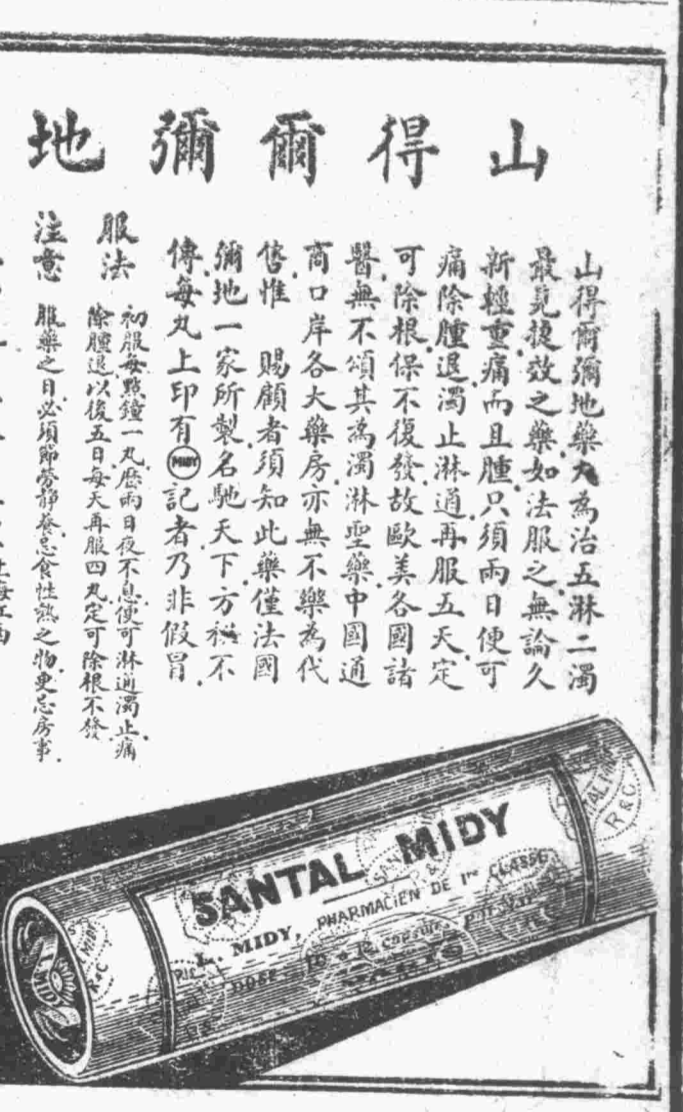 山得爾彌地
山得爾彌地藥大為治五淋二濁
最見捷效之藥如法服之無論久
新輕重痛而且腫只須兩日便可
痛除腫退濁止淋通再服五天定
可除根保不復發故歐美各國諸
醫無不頌其為濁淋聖藥中國通
商口岸各大藥房亦無不樂為代
售惟 賜顧者須知此藥僅法國
彌地一家所製名馳天下方祕不
傳每丸上印有MIDY記者乃非假冒
服法
初服每點鐘一丸歷兩日夜不息便可淋通濁止痛
除腫退以後五日每天再服四丸定可除根不發
注意
服藥之日必須節勞靜養忌食性熱之物更忌房事
SANTAL MIDY
L. MIDY, PHARMACIEN DE 1re CLASSE
DOSE 10 à 12 capsules
R&C
MIDY
R&C
MIDY